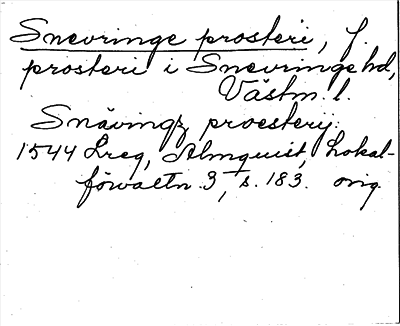 Snevringe prosteri, f.
prosteri i Snevringe hd,
Västm. l.
Snävingz proesterij.
1544 Lreg, Almquist, Lokal-
förvaltn. 3, s. 183. orig.